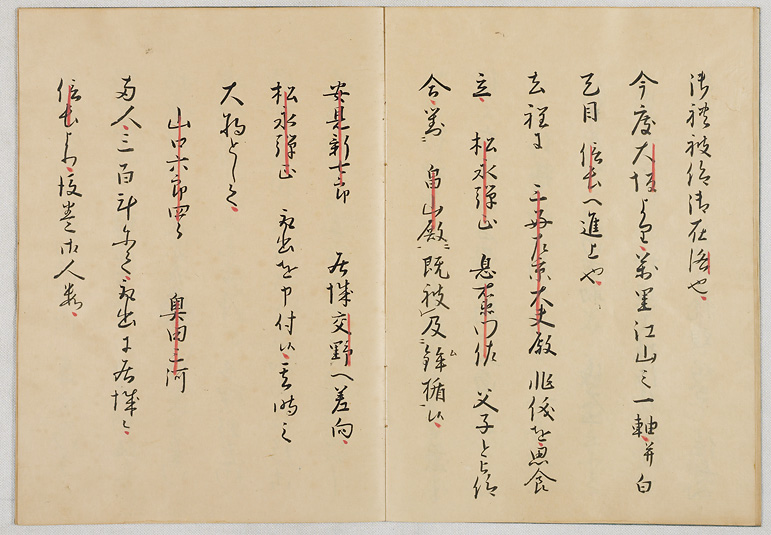 御礼被仰御在洛也
今度大坂より万里江山之一軸并白
天目信長へ進上也
去程に三好左京大夫殿非儀を思食
立松永弾正息右衛門佐父子と被仰
合對畠山殿既被及鉾楯候
安見新七郎居城交野へ差向
松永弾正取出を申付候其時之
大将として
山口六郎四郎奥田三河
両人三百計にて取出に居城
信長より後巻御人数